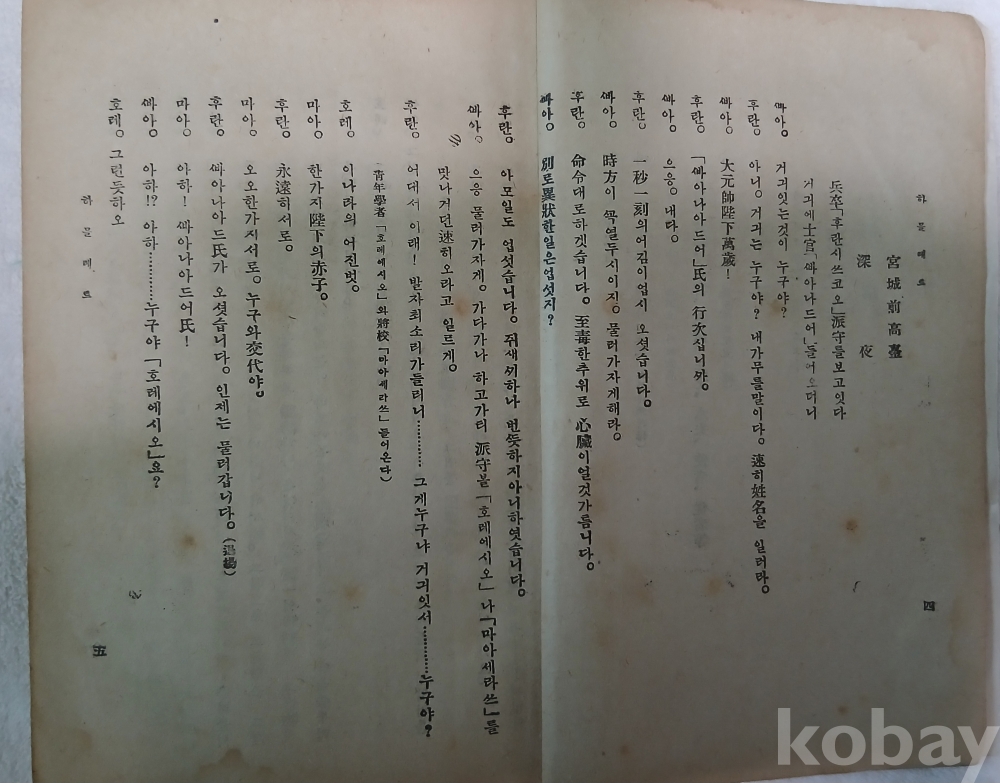 하믈레트
四
宮城前高臺
深夜
兵卒「후란시쓰코오」派守를보고잇다
거긔에士官「빠아나드어」들어오더니
빠아。 거긔잇는것이 누구야?
후란。 아니。 거긔는 누구야? 내가무를말이다。 速히姓名을 일러라。
빠아。 大元帥陛下萬歲!
후란。 「빠아나아드어」氏의 行次십니까。
빠아。 으응。 내다。
후란。 一秒一刻의어김이업시 오셧습니다。
빠아。 時方이 꼭열두시이지。 물러가자게해라。
후란。 命令대로하겟습니다。 至毒한추위로 心臟이얼것가틈니다。
빠아。 別로異狀한일은업섯지?
후란。 아모일도 업섯습니다。 쥐새끼하나 번듯하지아니하엿습니다。
빠아。 으응 물러가자게。 가다가나 하고가리 派守볼「호레에시오」나「마아세라쓰」를
맛나거던速히오라고 일르게。
후란。 어대서 이래! 발자최소리가들리니……… 그게누구냐 거긔잇서………누구야?
(靑年學者「호레에시오」와將校「마아세라쓰」들어온다)
호레。 이나라의 어진벗。
마아。 한가지陛下의赤子。
후란。 永遠히서로。
마아。 오오한가지서로。 누구와交代야。
후란。 빠아나아드氏가 오셧습니다。 인제는 물러갑니다。(退場)
마아。 아하! 빠아나아드어氏!
빠아。 아하!? 아하………누구야「호레에시오」요?
호레。 그런듯하오
하믈레트
五
kobay